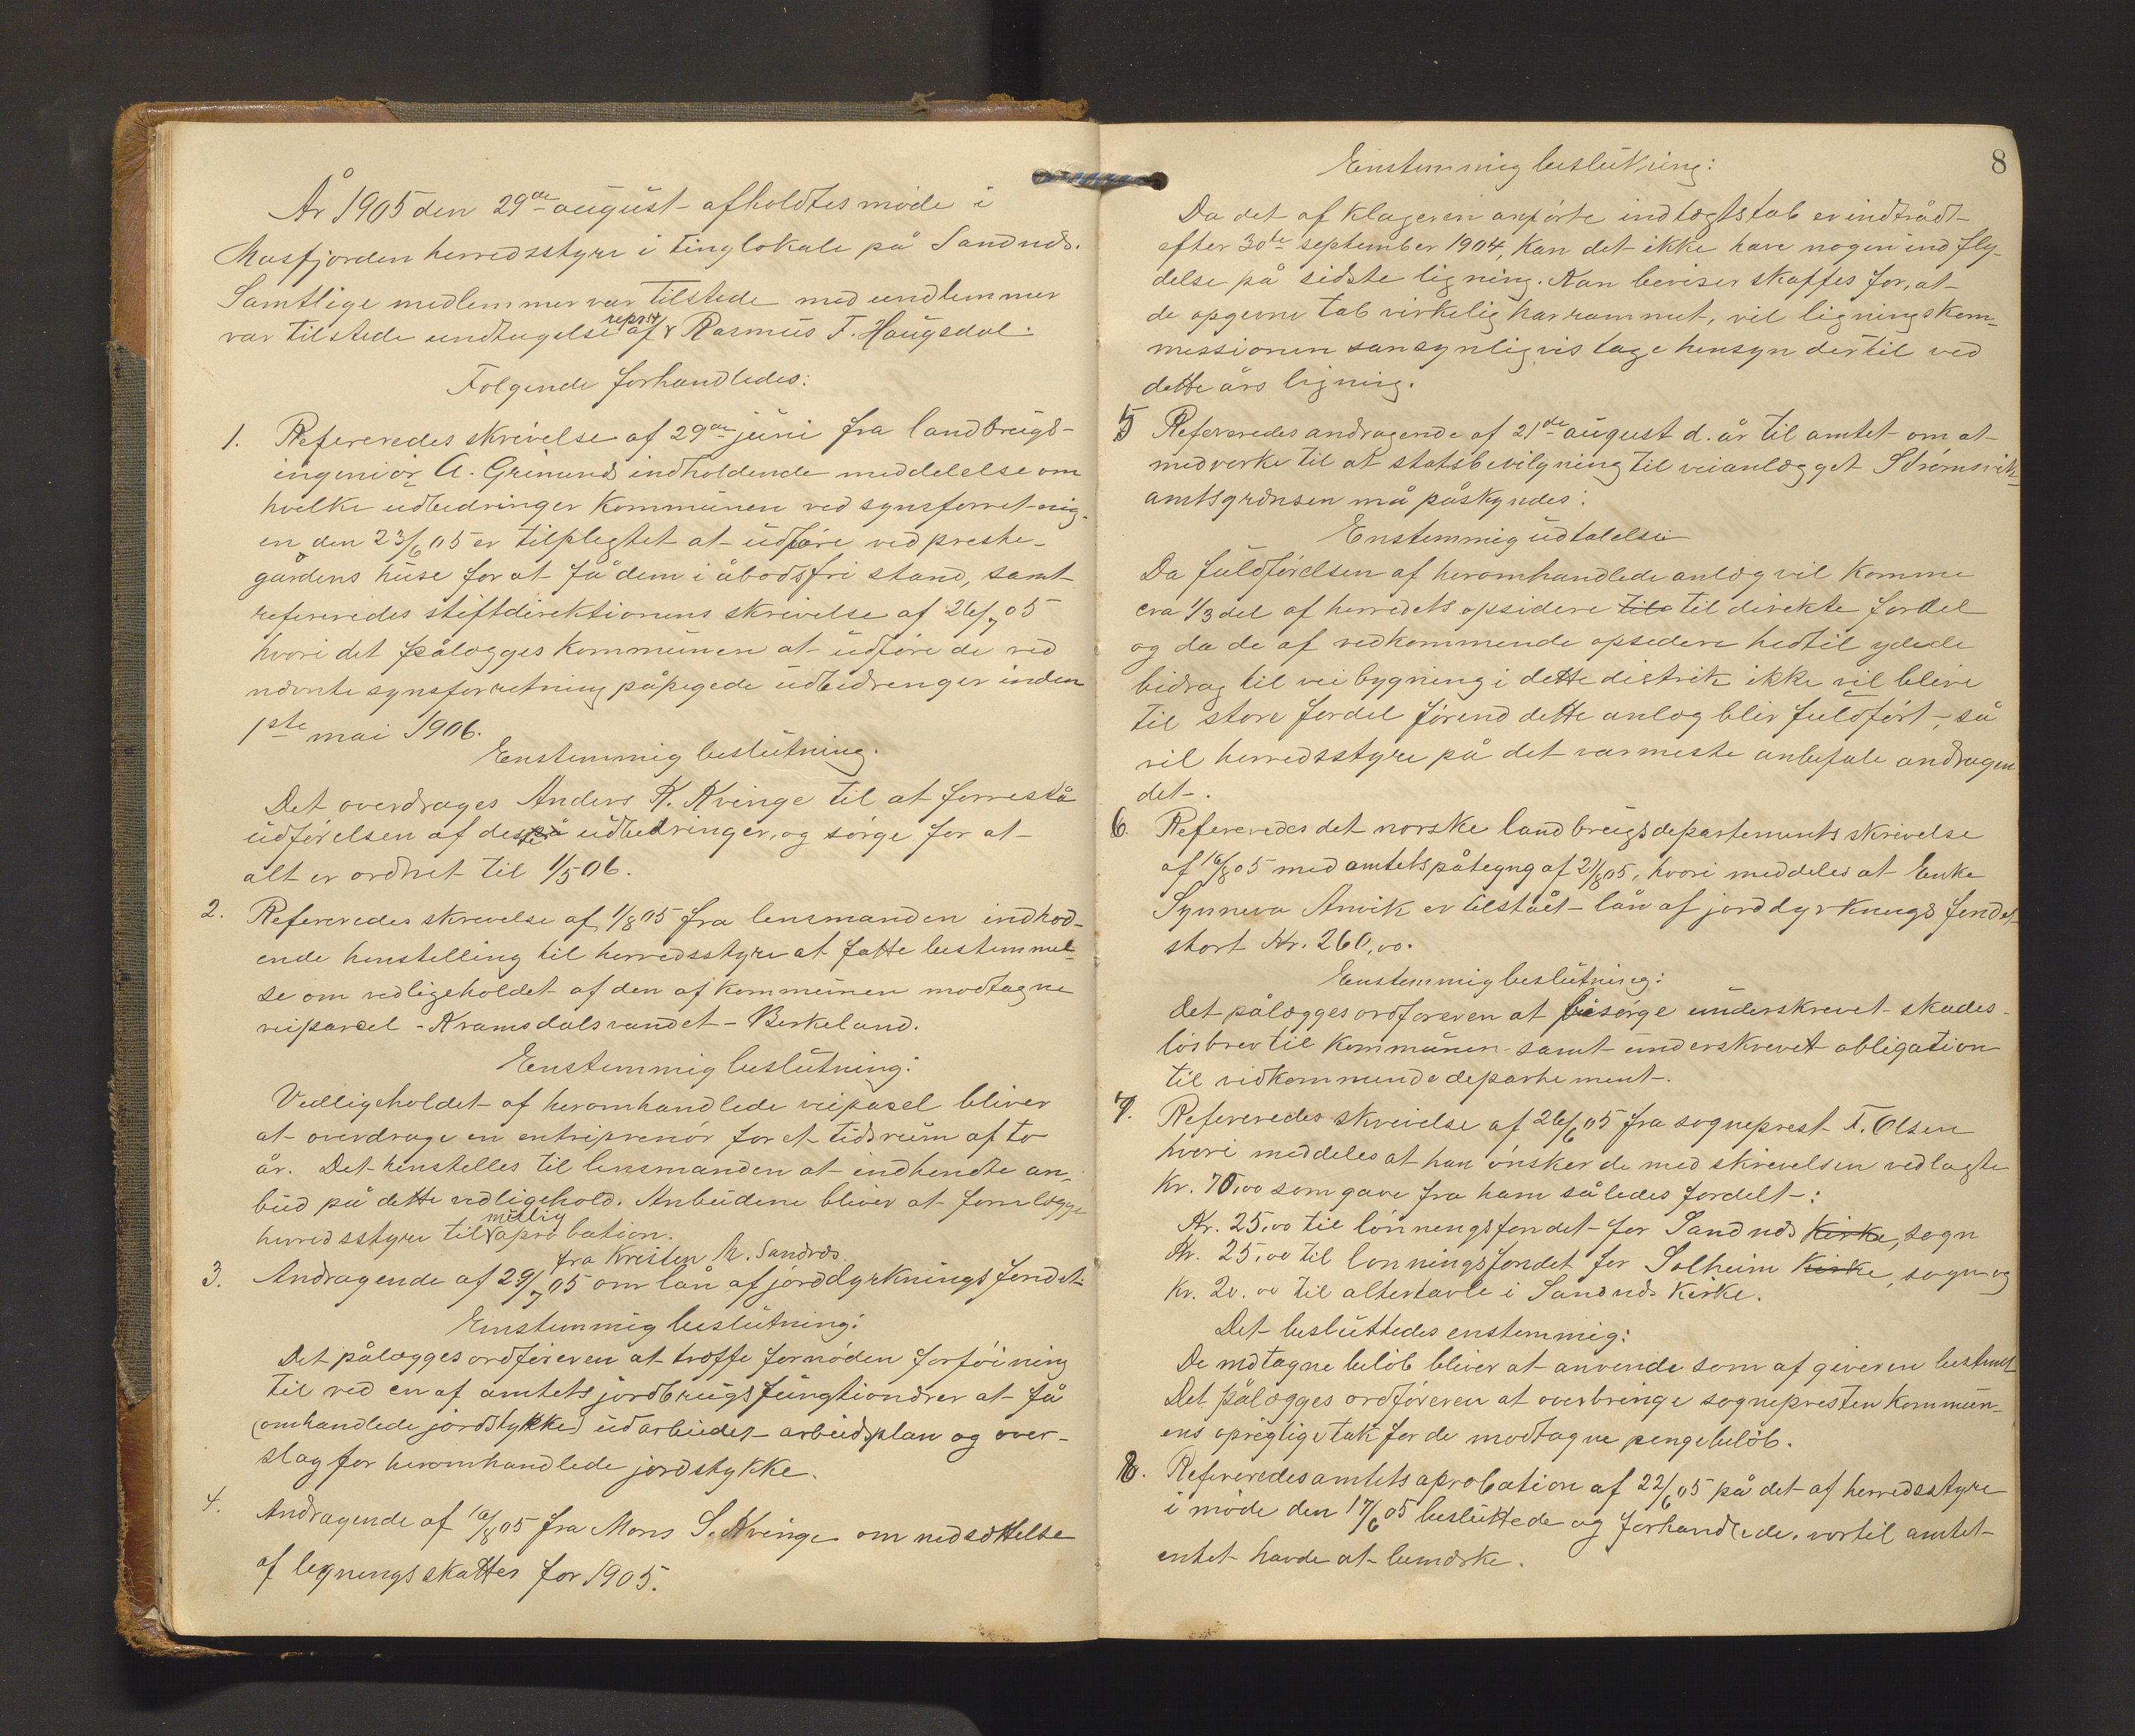 År 1905 den 29de august afholdtes møde i
Masfjorden herredsstyre i tinglokale på Sandnæs.
Samtlige medlemmer var tilstede med undtemmer
var tilstede undtagelse af repræst Rasmus T. Haugsdal.
Følgende forhandledes:
1. Refereredes skrivelse af 29de juni fra landbrugs-
ingeniør A. Grimnes indholdende meddelelse om
hvilke udbedringer kommunen ved synsforretning-
en den 23/6 05 er tilplegtet at udføre ved preste-
gårdens huse for at få dem i åbodsfri stand, samt
refereredes stiftdirektionens skrivelse af 26/7 05
hvori det pålægges kommunen at udføre de ved
nævnte synsforretning påpegede udbedrenger inden
1ste mai 1906.
Enstemmig beslutning.
Det overdrages Anders K. Kvinge til at forrestå
udførelsen af disse udbedringer, og sørge for at
alt er ordnet til 1/5 06.
2. Refereredes skrevelse af 1/8 05 fra lensmanden indhod-
ende henstelling til herredsstyre at fatte bestemmel-
se om vedligeholdet af den af kommunen modtagne
veiparcel - Kramsdalsvandet - Birkeland.
Eenstemmig beslutning:
Vedligeholdet af heromhandlede veipacel bliver
at overdrage en entreprenør for et tidsrum af to
år. Det henstelles til lensmanden at indhente an-
bud på dette vedligehold. Anbudene bliver at forelægge
herredsstyre til mulig aprobation.
3. Andragende af 29/7 05 fra Kristen M. Sandnæs om lån af jorddyrkningsfondet.
Einstemmig beslutning:
Det pålægges ordføreren at træffe fornøden forføining
til ved en af amtets jordbrugsfungtionærer at få
(omhandlede jordstykke) udarbeidet arbeidsplan og over-
slag for heromhandlede jordstykke.
4. Andragende af 16/8 05 fra Mons S. Kvinge om nedsættelse
af legningsskatter for 1905.
8
Enstemmig beslutning:
Da det af klageren anførte indtægtstab er indtrådt
efter 30te september 1904, kan det ikke have nogen indfly-
delse på sidste ligning. Kan beviser skaffes for, at
de opgevne tab virkelig har rammet, vil ligningskom-
messionen sansynligvis tage hensyn dertil ved
dette års ligning.
5 Refereredes andragende af 21de august d. år til amtet om at
medverke til at statsbevilgning til veianlægget Strømsvik-
amtsgrænsen må påskyndes:
Enstemmig udtalelse
Da fuldførelsen af heromhandlede anlæg vil komme
cra 1/3 del af herredets opsidere til til direkte fordel
og da de af vedkommende opsedere hedtil ydede
bidrag til vei bygning i dette distrik ikke vil blive
til store fordel førend dette anlæg blir fuldført, så
vil herredsstyre på det varmeste anbefale andragen
det.
6. Refereredes det norske landbrugsdepartements skrivelse
af 16/8 05 med amtets påtegng af 21/8 05, hvori meddeles at Enke
Synneva Anvik er tilstået lån af jorddyrkningsfondet
stort Kr. 260,00.
Eenstemmig beslutning:
Det pålægges ordføreren at besørge underskrevet skades-
løsbrev til kommunen samt underskrevet obligation
til vedkommende departement.
7. Refereredes skreivelse af 26/6 05 fra sogneprest T. Olsen
hvori meddeles at han ønsker de med skrivelsen vedlagte
Kr. 70,00 som gave fra ham således fordelt:
Kr. 25,00 til lønningsfondet for Sandnæs kirke, sogn
Kr. 25,00 til lønningsfondet for Solheim kirke, sogn og
Kr. 20.00 til altertavle i Sandnæs kirke.
Det besluttedes enstemmig:
De mdtagne beløb bliver at anvende som af giveren bestemt
Det pålægges ordføreren at overbringe sognepresten kommun-
ens oprigtige tak for de modtagne pengebeløb.
8. Refereredes amtets aprobation af 22/6 05 på det af herredsstyre
i møde den 17/6 05 besluttede og forhandlede, vortil amtet
entet havde at bemærke.